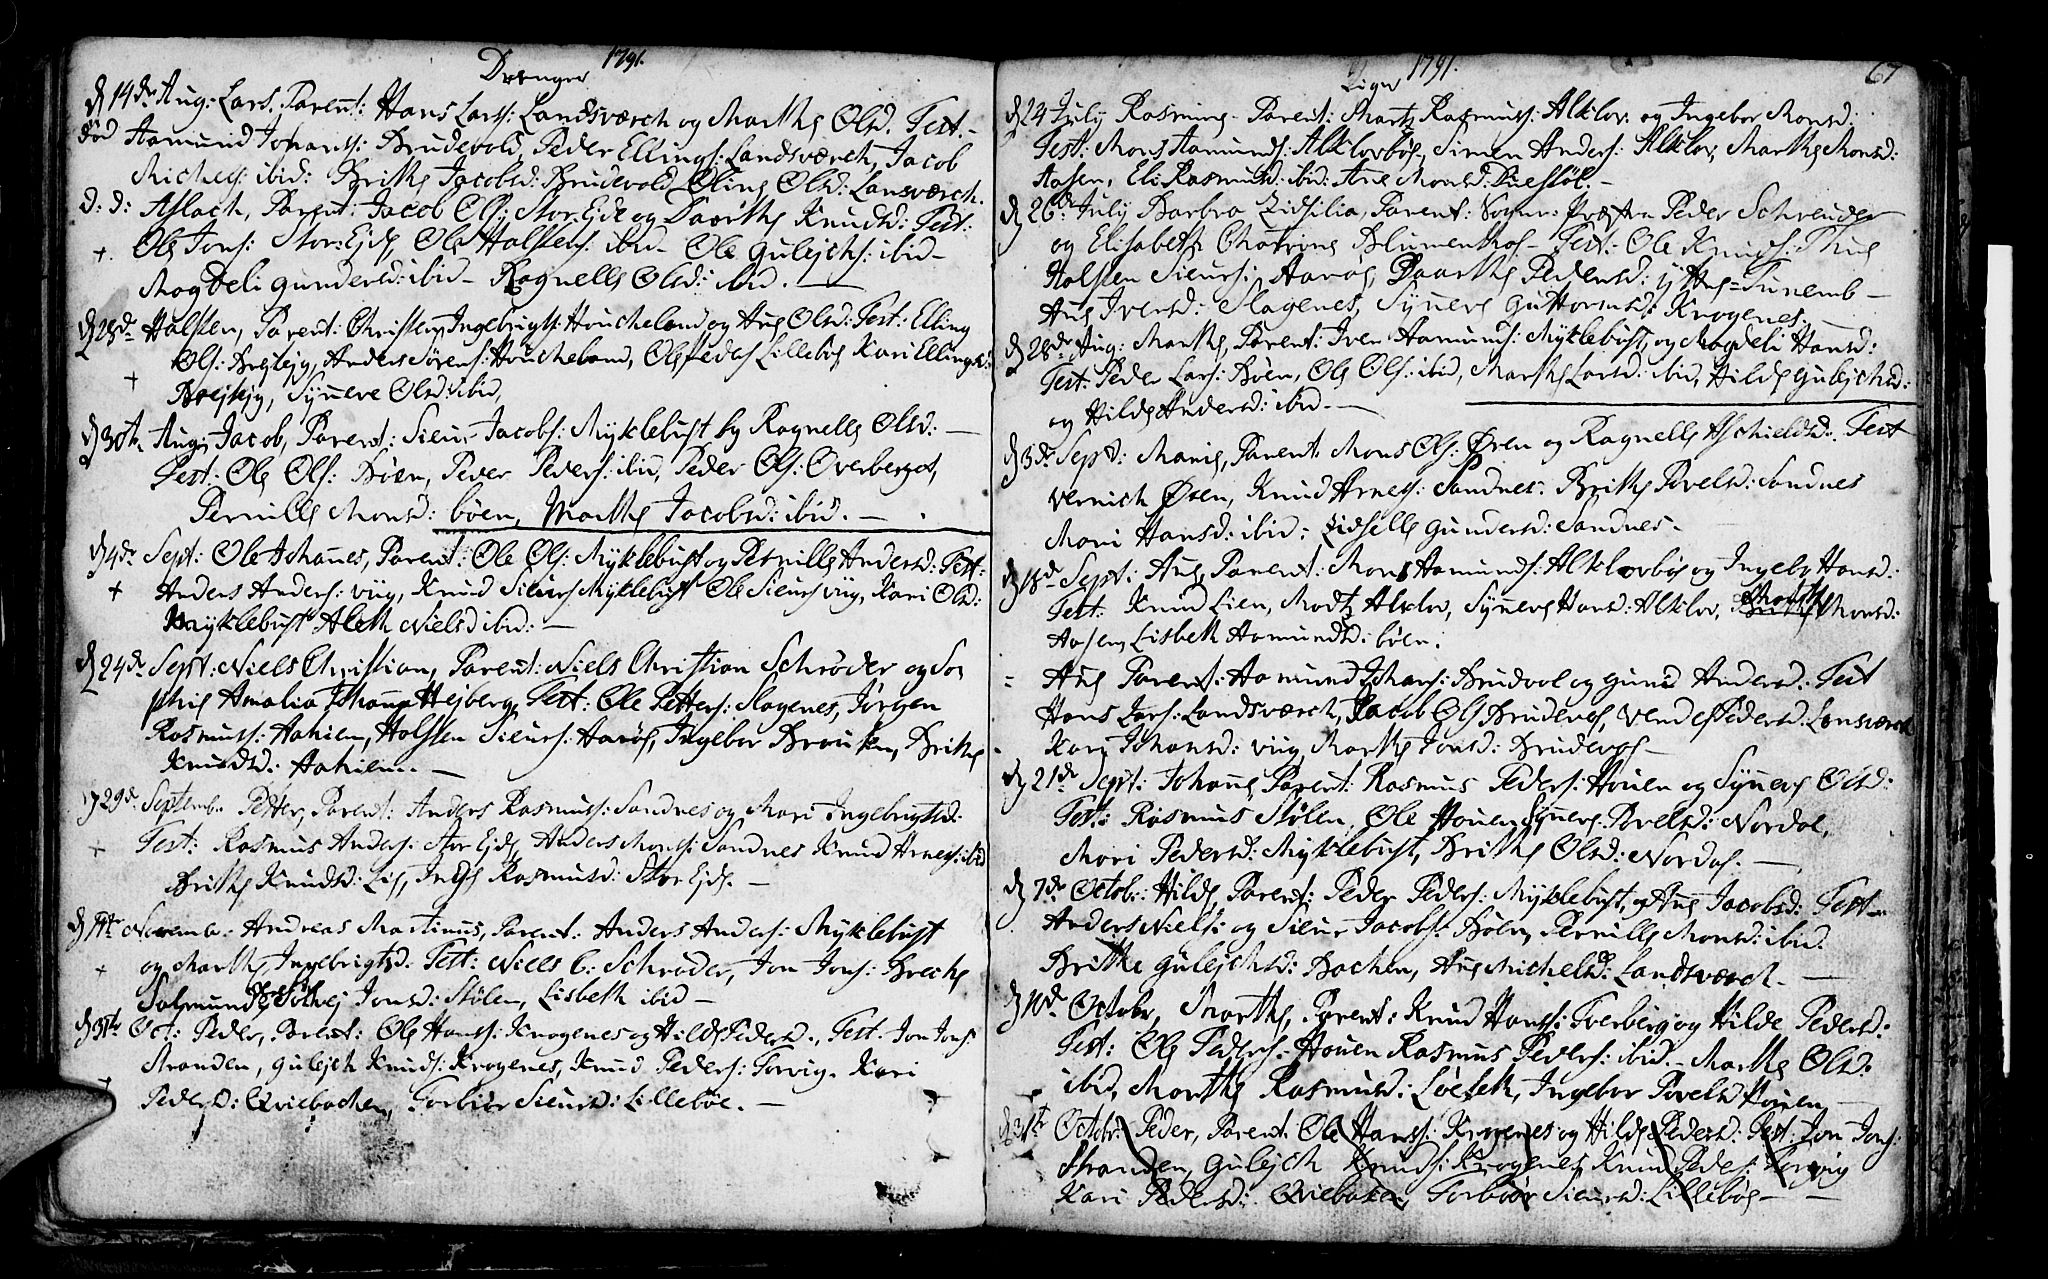 Drenger 1791.
d 14de Aug: Lars. Parent: Hans Lars: Landsværch og Marthe Olsd. Test.
Aamund Johans: Brudevold, Peder Ellings: Landsværch, Jacob
Michels: ibid: Brithe Jacobsd: Brudevold Oline Olsd: Lansværch.
d: d: Aslach, Parent: Jacob Ols: Stor Ejde og Daarthe Knudsd: Test:
+ Ole Jons: Stor: Ejde Ole Halstens: ibid – Ole Gulejchs: ibid –
Magdeli Gundersd: ibid – Ragnelle Olsd: ibid. —
d 28de Halsten, Parent: Christen Ingebrigts: Houcheland og Ane Olsd: Test: Elling
Ols: Brejlejg, Anders Sørens: Houcheland, Ole Peders Lillebøe Kari Ellingsd:
+ Brejlejg, Synneve Olsd: ibid,
d 30te Aug: Jacob, Parent: Sieur Jacobs: Myklebust og Ragnelle Olsd: —
Test: Ole Ols: Bøen, Peder Peders: ibid, Peder Ols: Overberget,
Pernille Monsd: bøen, Marthe Jacobsd: ibid. —
d 4de Sept: Ole Johanes, Parent: Ole Ols: Myklebust og Pernille Andersd: Test:
+ Anders Anders: viig, Knud Sieurs Myklebust Ole Sieurs viig, Kari Olsd:
Myklebust Aleth Nielsd ibid: —
d 24de Sept: Niels Christian, Parent: Niels Christian Schrøder og So
phie Amalia Johanna Hejberg, Test: Ole Petters: Slagenes, Jørgen
Rasmuss: Hahiem, Halsten Sieurs: Harøe, Ingebor Brousken, Brithe
Knudsd: Hahiem. —
d 29de Septemb. Petter, Parent: Anders Rasmuss: Sandnes og Mari Ingebrigtsd:
+ Test: Rasmus Anders: Stor Ejde Anders Mons: Sandnes Knud Arnes: ibid
Brithe Knudsd: Lie, Inge Rasmusd: Stor Ejde. —
Novemb: Andreas Martinus, Parent: Anders Anders: Myklebust
+ og Marthe Ingebrigtsd. Test: Niels C: Schrøder, Jon Jons: Breche
Salmund Solvej Jonsd: Stølen, Lisbeth ibid –
d 31te Oct: Peder, Parent: Ole Hanss: Krogenes og Hilde Pedersd. Test. Jon Jons
Stranden, Gulejch Knuds: Krogenes, Knud Peders: Torvig. Kari
+ Pedersd: Qviebachen, Torbiør Sieursd: Lillebøe. —
Piger 1791. 67
d 24 July Rasmine – Parent: Martz Rasmuss: Alklov og Ingebor Monsd:
Test: Mons Aamunds: Alklovbøe, Simen Anders: Alklov, Marthe Monsd:
Aasen, Eli Rasmusd: ibid: Ane Monsd: –
d 26de July Barbra Zidsilia, Parent: Sogne: Præsten Peder Schreuder
og Elisabeth Chatrine Blumenthos – Test: Ole Knuds: Thue
Halsten Sieurs: Aarøe, Daarthe Pedersd: Tunemb –
Ane Iversd: Slagenes, Synneve Guttormsd: Krogenes.
d 28de Aug: Marthe, Parent: Iver Aamunds: Myklebust, og Magdeli Hansd:
Test: Peder Lars: Bøen, Ole Ols: ibid, Marthe Larsd: ibid, Hilde Gulejchsd:
og Hilde Andersd: ibid. —
d 3de Sept: Marie, Parent: Mons Ols: Øren og Ragnelle Aschieldsd: Test
Vernich Øren, Knud Arness: Sandnes. Brithe Povelsd: Sandnes
Mari Hansd: ibid: Zidselle Gundersd: Sandnes –
d 18de Sept: Ane, Parent: Mons Aamunds: Alklovbøe og Ingebor Hansd:
Test: Knud Lien, Martz Alklov, Synneve Hansd: Alklov, Marthe Monsd:
Aasen, Lisbeth Aamundsd: bøen.
= Ane Parent: Aamund Johans: Brudvol og Guned Andersd: Test
Hans Lars: Landsværch, Jacob Ols Brudevol, Vendel Pedersd: Lansværch
Kari Johansd: viig Marthe Jonsd: Brudevol –
d 21de Sept: Johane Parent: Rasmus Peders: Houen og Synneve Olsd:
Test: Rasmus Stølen, Ole Houen Synneve Povelsd: Nordal,
Mari Pedersd: Myklebust, Brithe Olsd: Nordal. —
d 7de Octob: Hilde, Parent: Peder Peders: Myklebust, og Ane Jacobsd: Test –
Anders Niels: og Sieur Jacobs: Bøen, Pernille Monsd: ibid.
Brithe Gulejchsd: Bachen, Ane Michelsd: Landsværch. —
d 10de Octobr, Marthe, Parent: Knud Hanss: Tverberg og Hilde Pedersd:
Test: Ole Peders: Houen Rasmus Peders: ibid. – Marthe Olsd.
ibid, Marthe Rasmusd: Løeseth, Ingebor Povelsd Houen –
d 31te Octobr: Peder, Parent: Ole Hanss: Krogenes og Hilde Pedersd: Test: Jon Jons:
Stranden, Gulejch Knuds: Krogenes Knud Peders: Torvig
Kari Pedersd: Qviebachen, Torbiør Sieursd: Lillebøe –